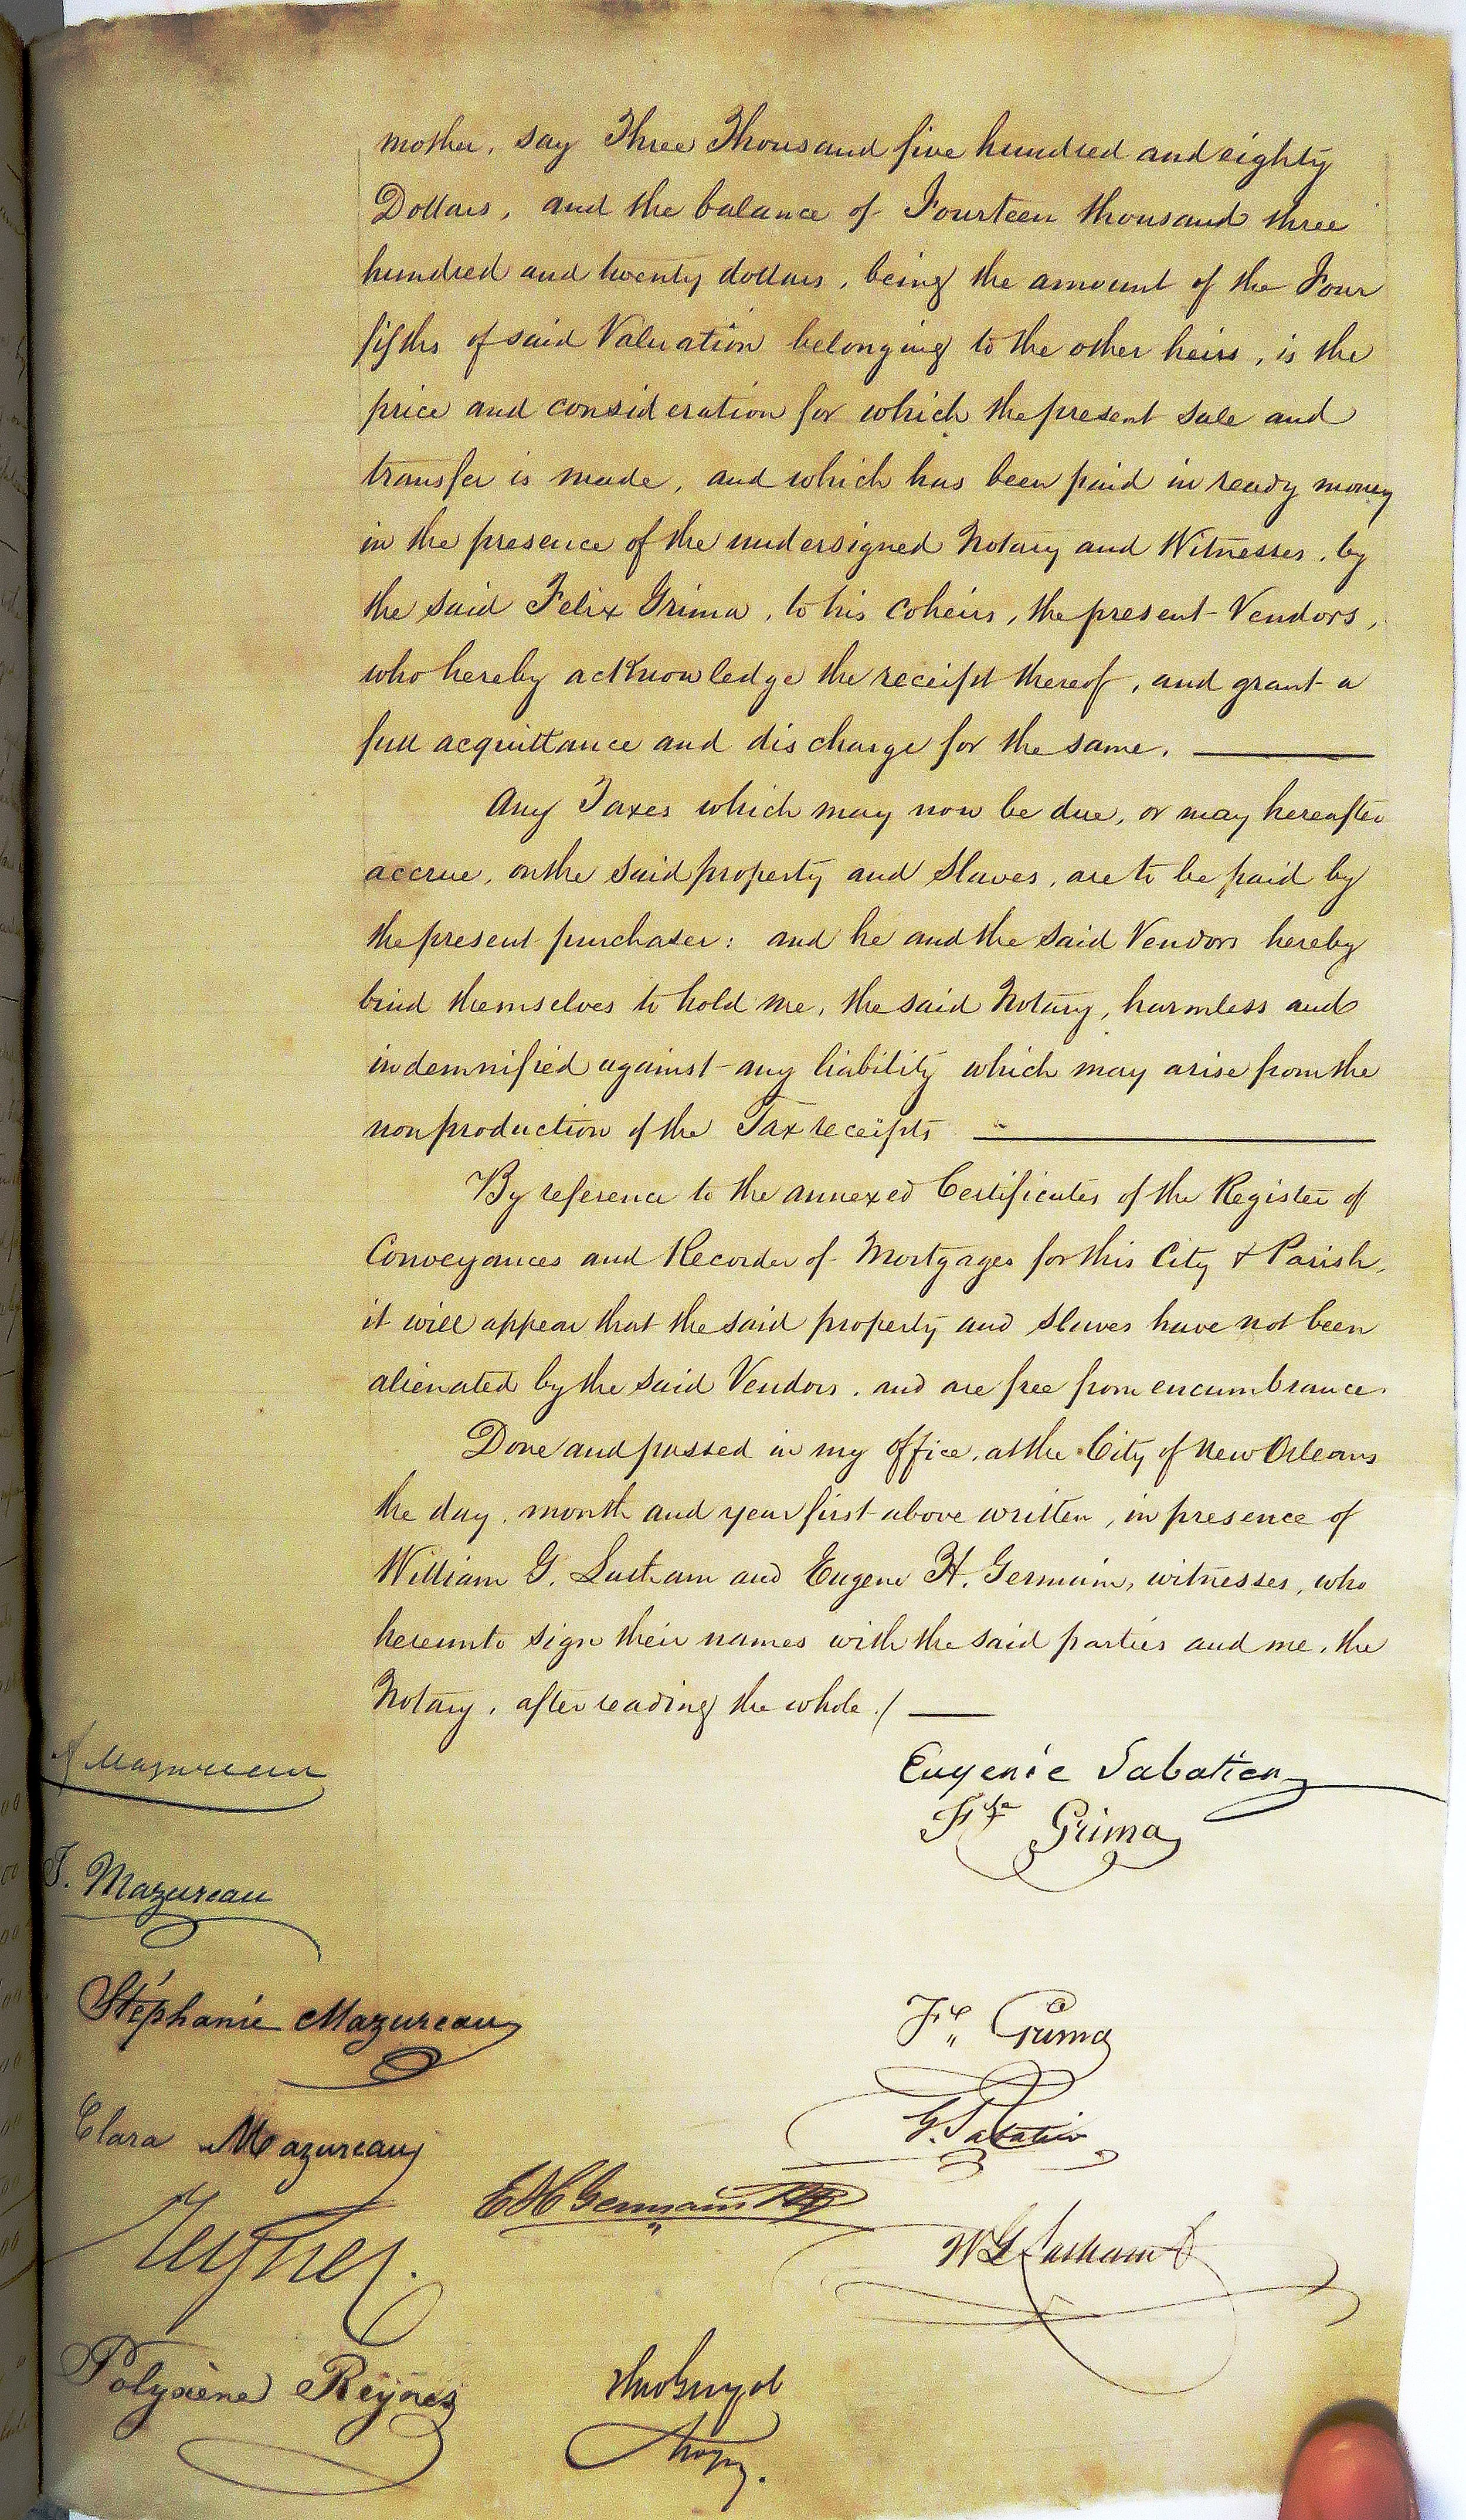 mother, say Three Thousand five hundred and eighty
Dollars, and the balance of Fourteen thousand three
hundred and twenty dollars, being the amount of the Four
fifths of said Valuation belonging to the other heirs, is the
price and consideration for which the present sale and
transfer is made, and which has been paid in ready money
in the presence of the undersigned Notary and Witnesses, by
the said Felix Grima, to his coheirs, the present Vendors,
who hereby acknowledge the receipt thereof, and grant a
full acquittance and discharge for the same.
Any Taxes which may now be due, or may hereafter
accrue, on the said property and Slaves, are to be paid by
the present purchaser: and he and the said Vendors hereby
bind themselves to hold me, the said Notary, harmless and
indemnified against any liability which may arise from the
non production of the Tax receipts
By reference to the annexed Certificates of the Register of
Conveyances and Recorder of Mortgages for this City & Parish,
it will appear that the said property and Slaves have not been
alienated by the said Vendors, and are free from encumbrance.
Done and passed in my office, at the City of New Orleans
the day, month and year first above written, in presence of
William G. Latham and Eugene H. Germain, witnesses, who
hereunto sign their names with the said parties and me, the
Notary, after reading the whole./
Mazureau
Eugenie Sabatier
Grima
J. Mazureau
Stéphanie Mazureau
Fx Grima
Clara Mazureau
G. Sabatier
E H Germain
W G Latham
Jh Reynes
Polyxène Reÿnes
Theo Guyol
Not. Pub.